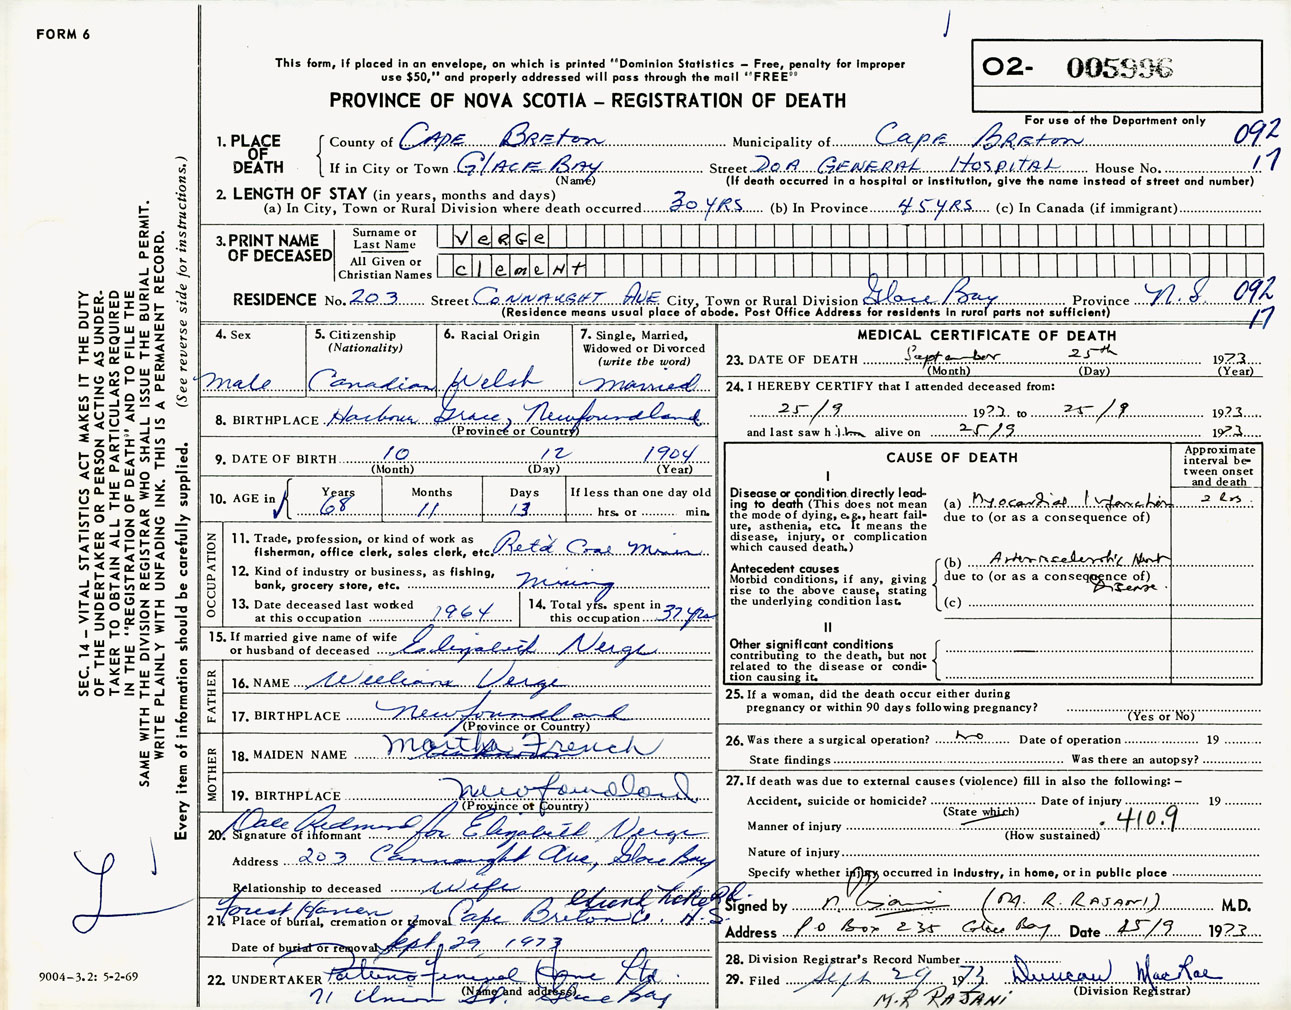 FORM 6
This form, if placed in an envelope, on which is printed "Dominion Statistics — Free, penalty for improper
use $50," and properly addressed will pass through the mail "FREE"
PROVINCE OF NOVA SCOTIA — REGISTRATION OF DEATH
O2- 005996
For use of the Department only
1. PLACE OF DEATH County of Cape Breton Municipality of Cape Breton 092
If in City or Town Glace Bay Street DOA General Hospital House No. 17
(Name) (If death occurred in a hospital or institution, give the name instead of street and number)
2. LENGTH OF STAY (in years, months and days)
(a) In City, Town or Rural Division where death occurred 30 YRS (b) In Province 45 YRS (c) In Canada (if immigrant)
3. PRINT NAME OF DECEASED Surname or Last Name Verge
All Given or Christian Names Clement
RESIDENCE No. 203 Street Connaught Ave City, Town or Rural Division Glace Bay Province N.S. 092
(Residence means usual place of abode. Post Office Address for residents in rural parts not sufficient) 17
4. Sex
Male
5. Citizenship
(Nationality)
Canadian
6. Racial Origin
Welsh
7. Single, Married,
Widowed or Divorced
(write the word)
Married
8. BIRTHPLACE Harbour Grace, Newfoundland
(Province or Country)
9. DATE OF BIRTH 10 12 1904
(Month) (Day) (Year)
10. AGE in Years 68 Months 11 Days 13 If less than one day old
hrs. or min.
OCCUPATION
11. Trade, profession, or kind of work as
fisherman, office clerk, sales clerk, etc. Ret'd Coal Miner
12. Kind of industry or business, as fishing,
bank, grocery store, etc. Mining
13. Date deceased last worked
at this occupation 1964
14. Total yrs. spent in
this occupation 37 yrs
15. If married give name of wife
or husband of deceased Elizabeth Verge
FATHER
16. NAME William Verge
17. BIRTHPLACE Newfoundland
(Province or Country)
MOTHER
18. MAIDEN NAME Martha French
19. BIRTHPLACE Newfoundland
(Province or Country)
20. Dale Redmond for Elizabeth Verge
Signature of informant
Address 203 Connaught Ave, Glace Bay
Relationship to deceased Wife
Forest Haven
21. Place of burial, cremation or removal Cape Breton Co. N.S.
Date of burial or removal Sept 29, 1973
22. UNDERTAKER Funeral Home Ltd
(Name and address)
71 Union St. Glace Bay
MEDICAL CERTIFICATE OF DEATH
23. DATE OF DEATH September 25th 1973
(Month) (Day) (Year)
24. I HEREBY CERTIFY that I attended deceased from:
25/9 1973 to 25/9 1973
and last saw him alive on 25/9 1973
CAUSE OF DEATH
Approximate
interval be-
tween onset
and death
I
Disease or condition directly lead-
ing to death (This does not mean
the mode of dying, e.g., heart fail-
ure, asthenia, etc. It means the
disease, injury, or complication
which caused death.)
(a) Myocardial Infarction 2 hrs.
due to (or as a consequence of)
Antecedent causes
Morbid conditions, if any, giving
rise to the above cause, stating
the underlying condition last.
(b) Arteriosclerotic Heart
due to (or as a consequence of)
Disease
(c)
II
Other significant conditions
contributing to the death, but not
related to the disease or condi-
tion causing it.
25. If a woman, did the death occur either during
pregnancy or within 90 days following pregnancy?
(Yes or No)
26. Was there a surgical operation? No Date of operation 19
State findings Was there an autopsy?
27. If death was due to external causes (violence) fill in also the following: —
Accident, suicide or homicide? Date of injury 19
(State which)
Manner of injury 410.9
(How sustained)
Nature of injury
Specify whether injury occurred in industry, in home, or in public place
Signed by (M. R. RAJANI) M.D.
Address P O Box 235 Glace Bay Date 25/9 1973
28. Division Registrar's Record Number
29. Filed Sept 29 1973 Duncan MacRae
(Division Registrar)
M.R RAJANI
SEC. 14 — VITAL STATISTICS ACT MAKES IT THE DUTY
OF THE UNDERTAKER OR PERSON ACTING AS UNDER-
TAKER TO OBTAIN ALL THE PARTICULARS REQUIRED
IN THE "REGISTRATION OF DEATH" AND TO FILE THE
SAME WITH THE DIVISION REGISTRAR WHO SHALL ISSUE THE BURIAL PERMIT.
WRITE PLAINLY WITH UNFADING INK. THIS IS A PERMANENT RECORD.
Every item of information should be carefully supplied. (See reverse side for instructions.)
9004-3.2: 5-2-69